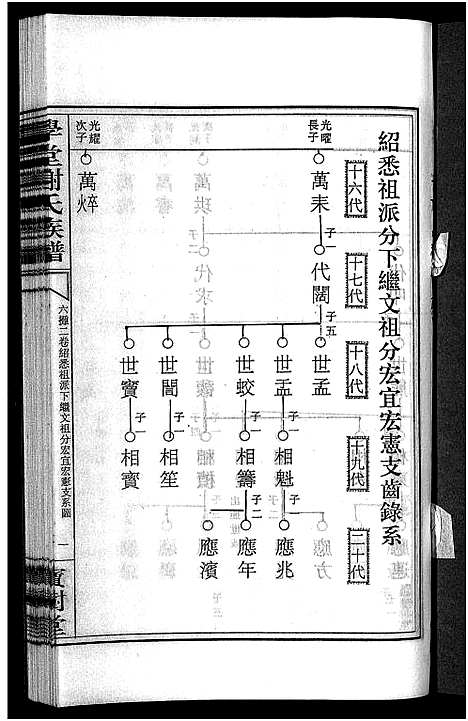 紹悉祖派分下繼文祖分宏宜宏憲支齒錄系
十六代
十七代
十八代
十九代
二十代
光曜
長子
萬耒
子一
代闊
子五
世孟
世孟
世蛟
世誾
世寳
子一
子一
子一
子一
相魁
相籌
相笙
相寳
子一
子二
應兆
應年
應濱
光耀
次子
萬焠
學堂謝氏族譜
六攤二卷紹悉祖派下繼文祖分宏宜宏憲支系圖
一
寳樹堂